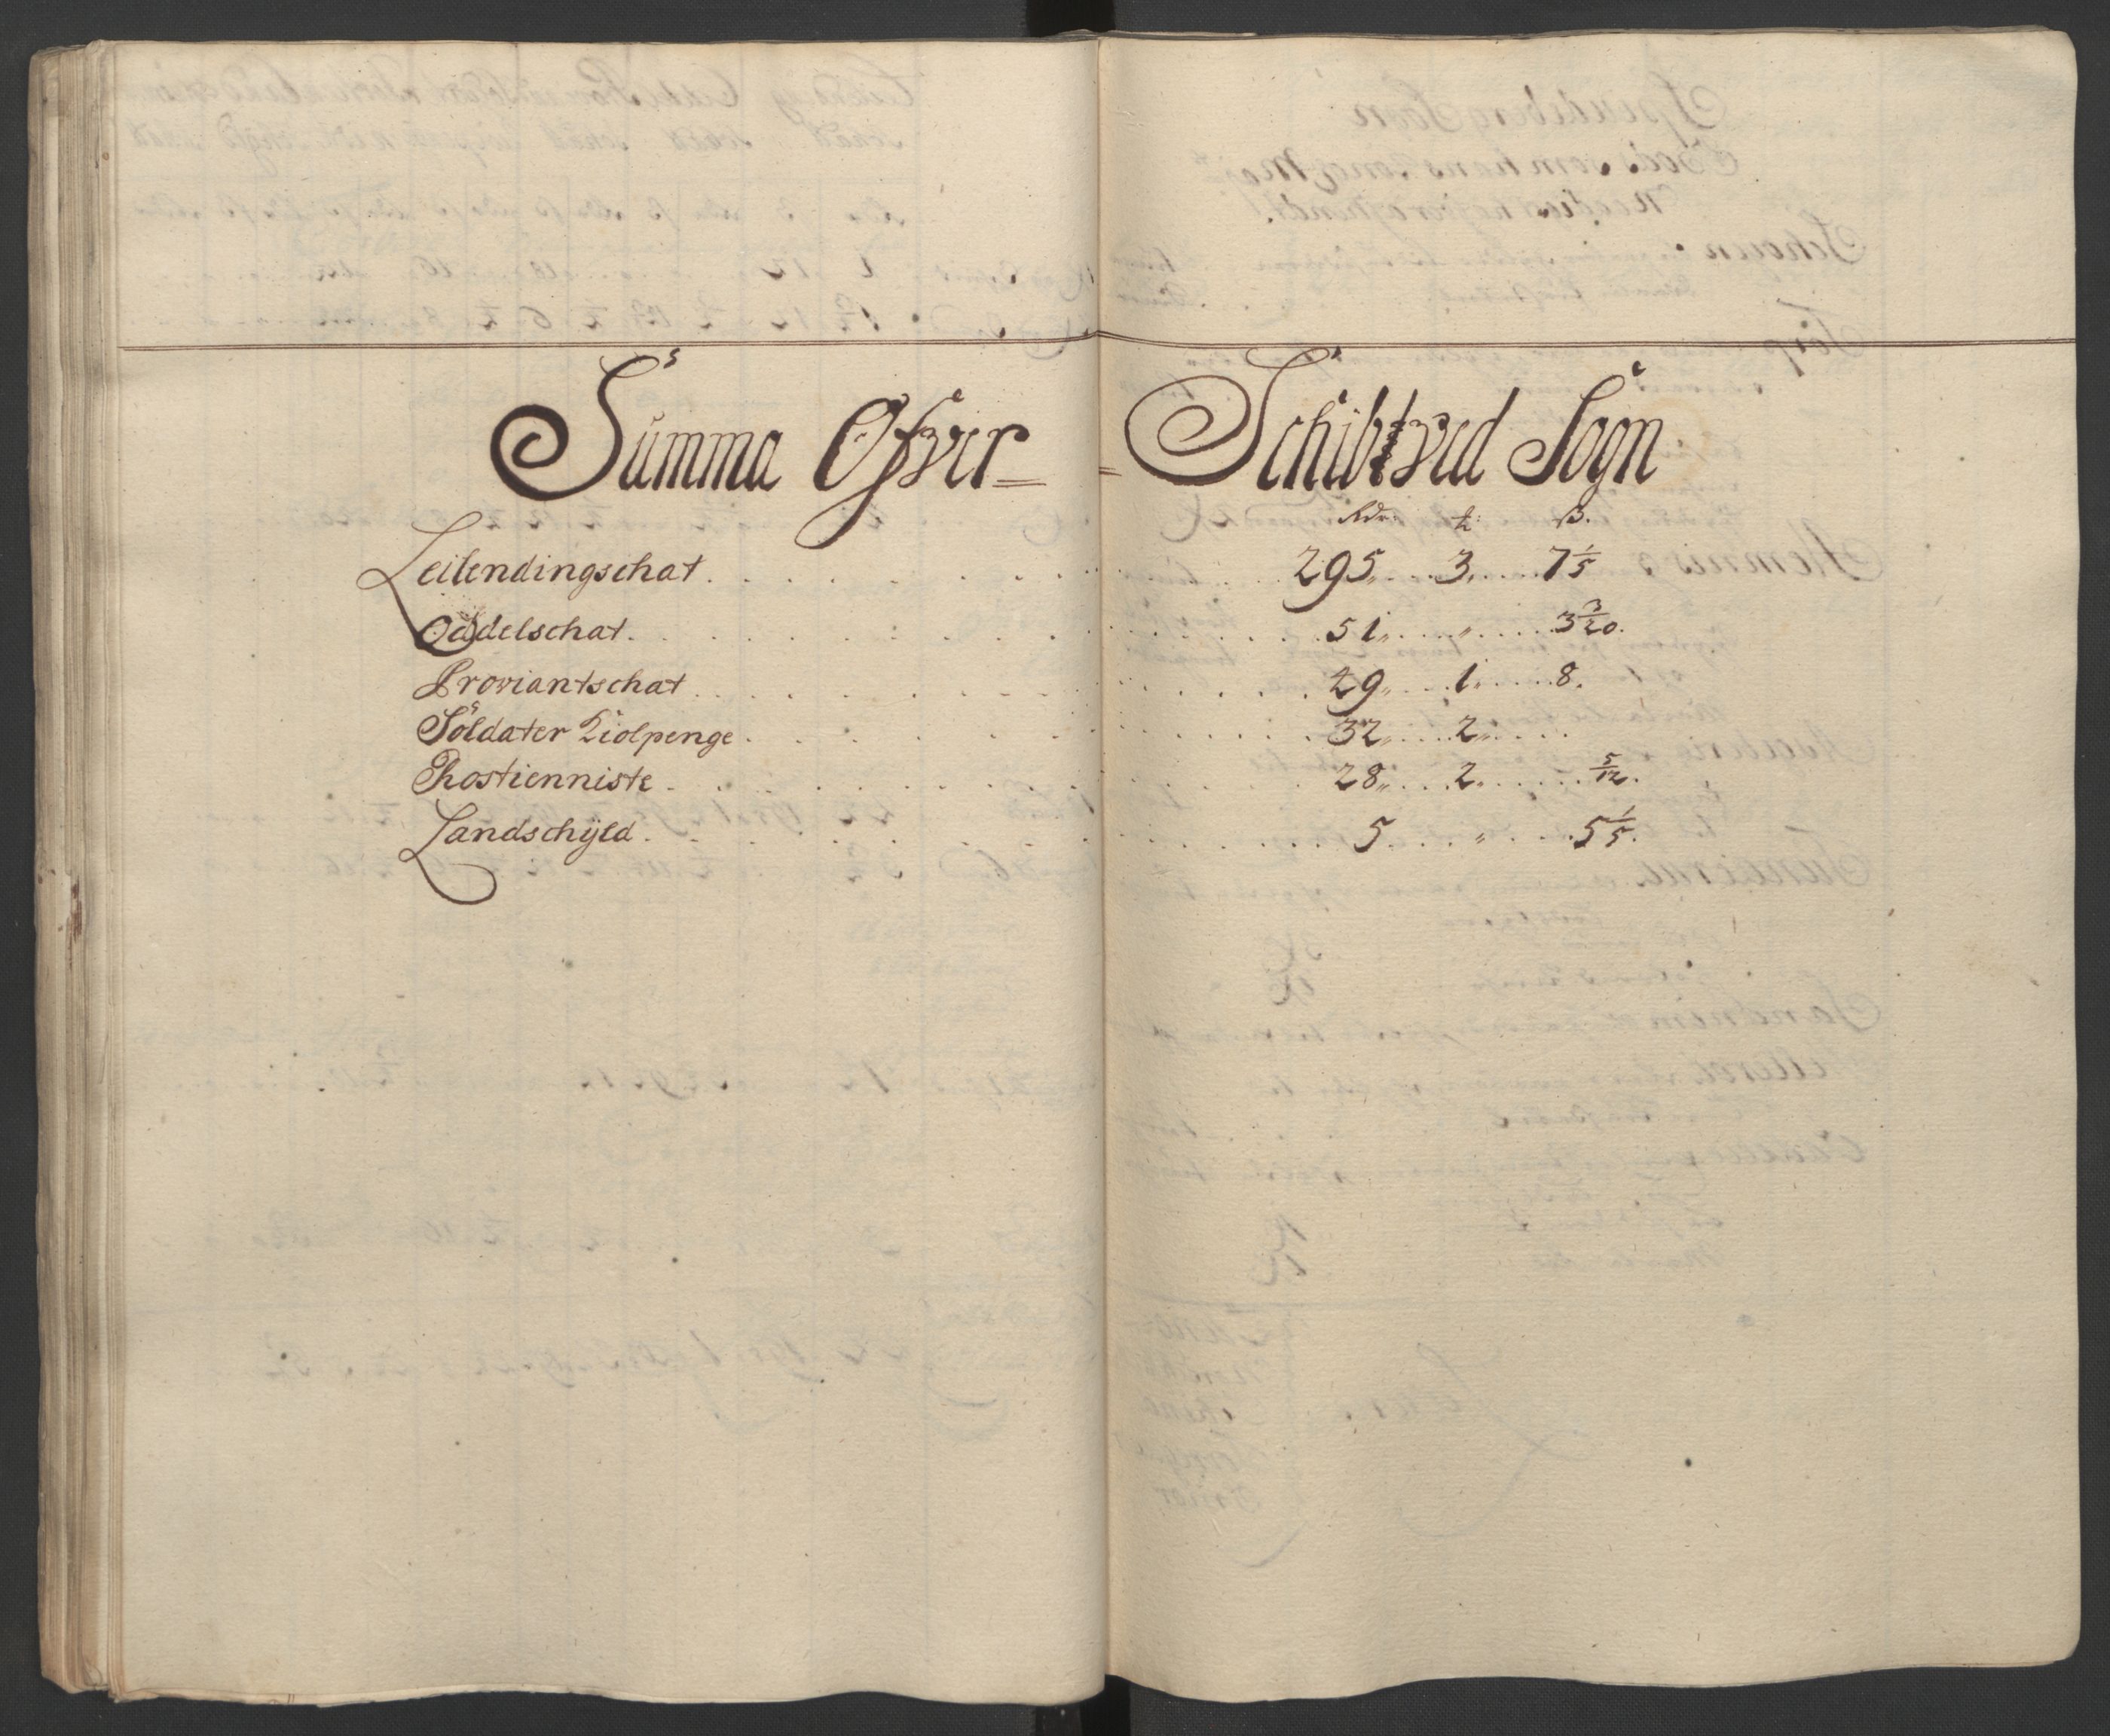 Summa Ofver= =Schibtved Sogn
Rdr: ₶: ß.
Leilendingschat. . . . . 295 „ . . 3 . . . . 7 1/5
Oddelschat. . . . . 51 „ . . . „ . . . . 3 3/20.
Proviantschat . . . . . 29 „ . . . 1 . . . . 8.
Soldater Kiolpenge . . . . . 32 „ . . . 2 „ . . . .
Rostienniste . . . . . 28 „ . . . 2 . . . . . 5/12.
Landschyld . . . . . 5 . . . „ . . . 5 1/5.